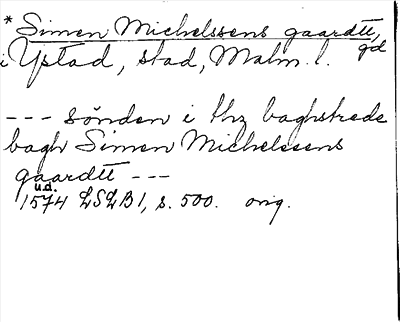 * Simen Michelssens gaardtt, gd
i Ystad, stad, Malm. l.
--- sönden i thz baghstrede
bagh Simen Michelssens
gaardtt ---
u.d.
1574 LSLB 1, s. 500. orig.